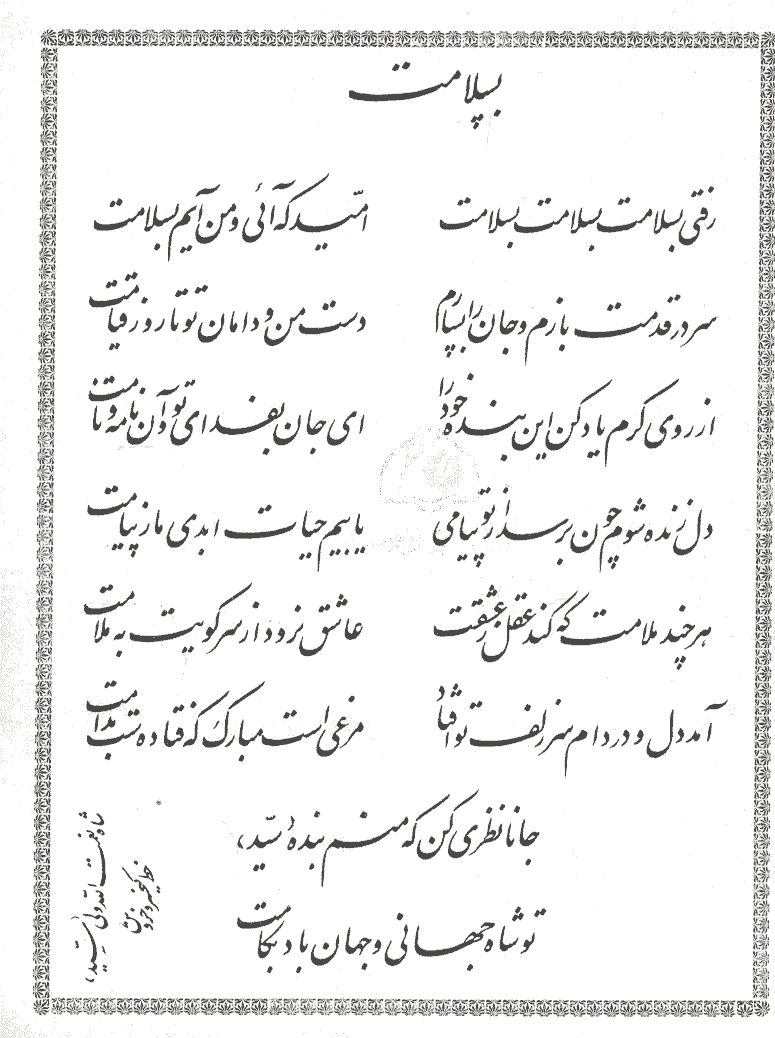 بسلامت
رفتی بسلامت بسلامت بسلامت
امّید که آئی و من آیم بسلامت
سر در قدمت بازم و جان را بسپارم
دست من و دامان تو تا روز قیامت
از روی کرم یاد کن این بنده خود را
ای جان بفدای تو و آن نامه و نامت
دل زنده شوم چون برسد از تو پیامی
یابیم حیات ابدی ما ز پیامت
هر چند ملامت که کند عقل ز عشقت
عاشق نرود از سر کویت به ملامت
آمد دل و در دام سر زلف تو افتاد
مرغی است مبارک که فتاده ست بدامت
جانا نظری کن که منم بنده سیّد،
تو شاه جهانی و جهان باد بکامت
شاه نعمت الله ولی سیّد،
خط کیخسرو خروش